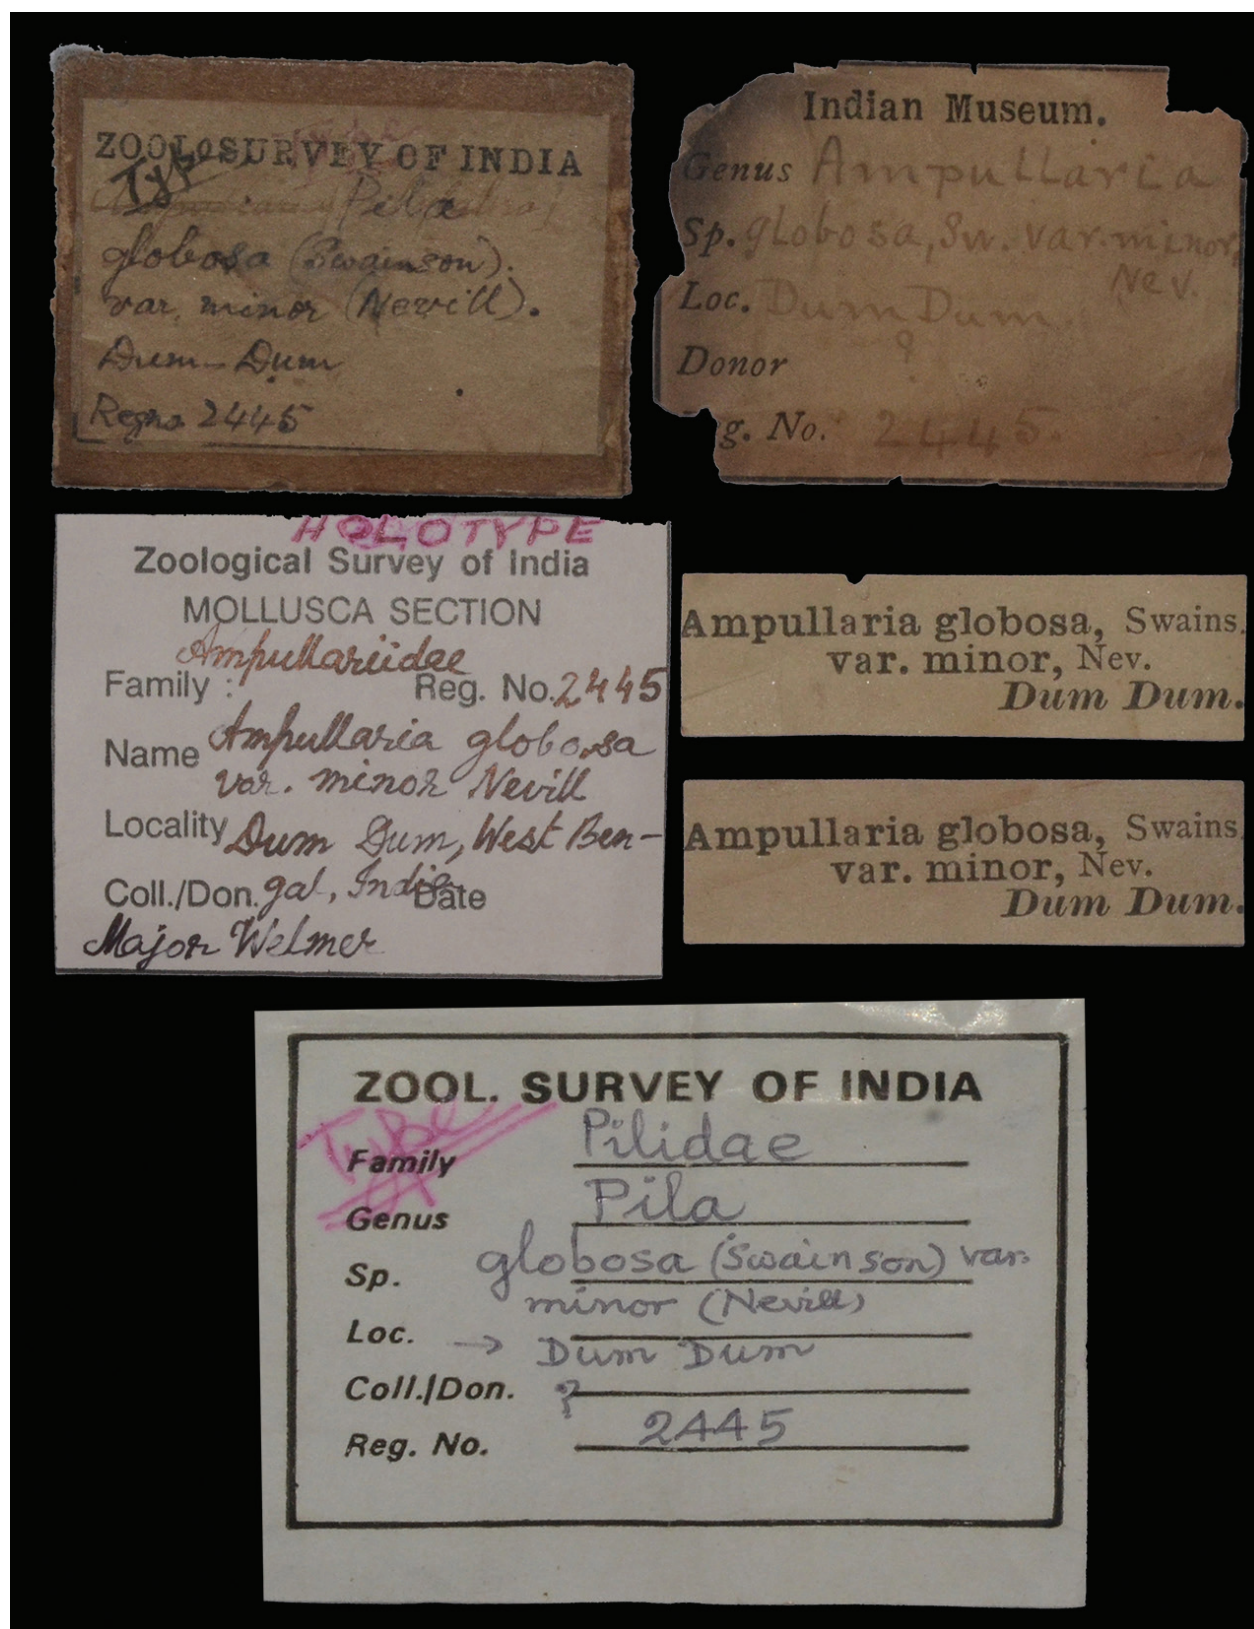 ZOOLO SURVEY OF INDIA
Type
Pila
globosa (Swainson).
var. minor (Nevill).
Dum-Dum
Regno. 2445
Indian Museum.
Genus Ampullaria
Sp. globosa, Sw. var. minor,
Nev.
Loc. Dum Dum.
?
Donor
g. No. 2445.
HOLOTYPE
Zoological Survey of India
MOLLUSCA SECTION
Ampullariidae
Family : Reg. No. 2445
Name Ampullaria globosa
var. minor Nevill
Locality Dum Dum, West Ben-
Coll./Don. gal, India Date
Major Welmer
Ampullaria globosa, Swains.
var. minor, Nev.
Dum Dum.
Ampullaria globosa, Swains
var. minor, Nev.
Dum Dum.
ZOOL. SURVEY OF INDIA
Type
Family Pilidae
Genus Pila
Sp. globosa (Swainson) var.
minor (Nevill)
Loc. → Dum Dum
Coll./Don. ?
Reg. No. 2445